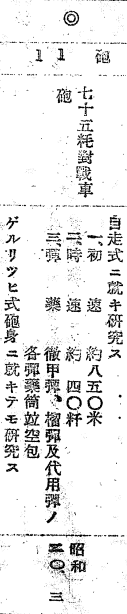 ◎
砲
11
七十五粍對戰車砲
自走式ニ就キ研究ス
一、初速 約八五〇米
二、時速 約四〇粁
三、彈藥 徹甲彈、榴彈及代用彈ノ
各彈藥筒竝空包
ゲルリツヒ式砲身ニ就キテモ研究ス
昭和
二〇、三